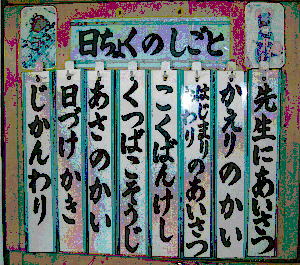 日ちょくのしごと
先生にあいさつ
かえりのかい
はじまりのあいさつ
おわり
こくばんけし
くつばこそうじ
あさのかい
日づけかき
じかんわり